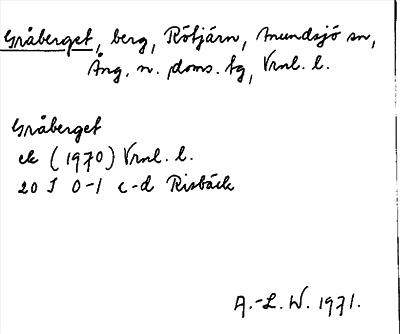 Gråberget, berg, Rötjärn, Mundsjö sn,
Ång. n. doms. tg, Vrnl. l.
Gråberget
ek (1970) Vrnl. l.
20 I 0-1 c-d Risbäck
A.-L. W. 1971.